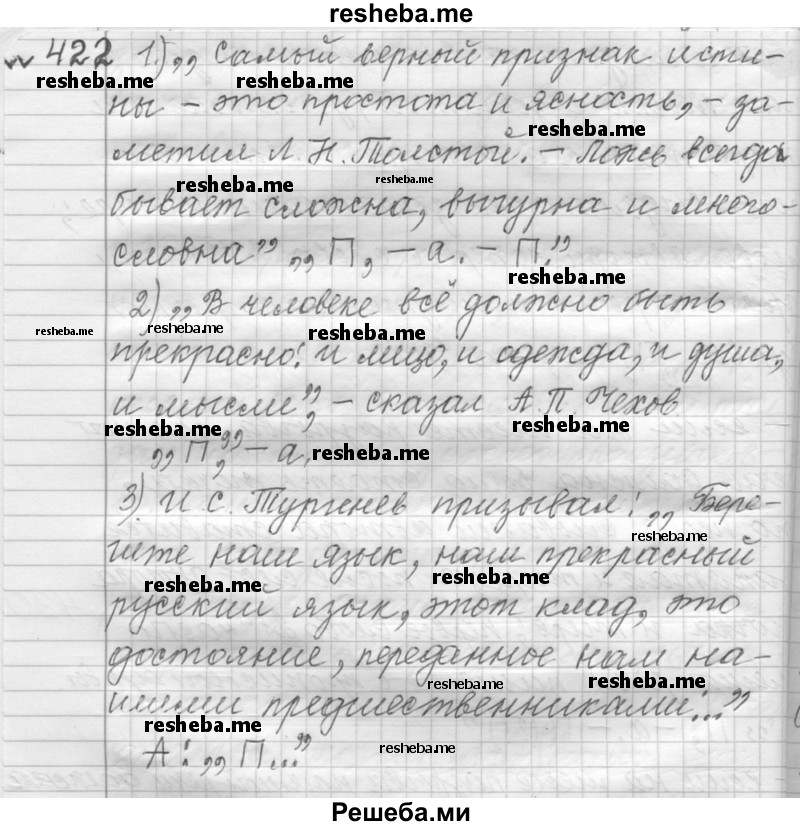 resheba.me
№ 422 1) „Самый верный признак исти-
resheba.me resheba.me
ны – это простота и ясность, – за-
resheba.me
метил Л. Н. Толстой. – Ложь всегда
resheba.me resheba.me
бывает сложна, вычурна и много-
словна” „П, – а. – П.”
resheba.me
2) „В человеке всё должно быть
resheba.me resheba.me resheba.me
прекрасно: и лицо, и одежда, и душа,
и мысли”, – сказал А. П. Чехов
resheba.me resheba.me
„П”, – а.
resheba.me
3) И. С. Тургенев призывал: „Бере-
resheba.me
гите наш язык, наш прекрасный
resheba.me resheba.me
русский язык, этот клад, это
достояние, переданное нам на-
resheba.me resheba.me
шими предшественниками...”
resheba.me
А: „П...”
resheba.me
Решеба.ми